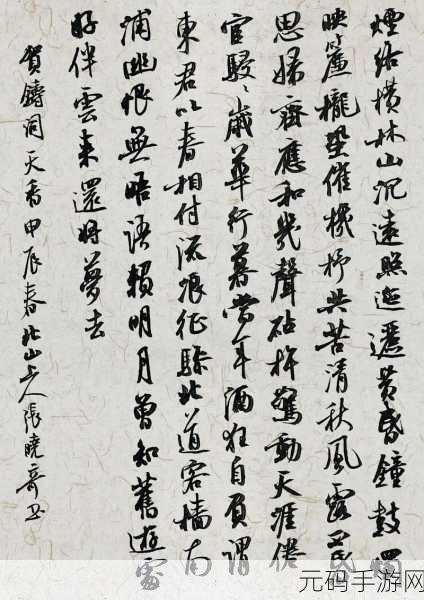 煙络横林山沉遠照迤邐黄昏鐘鼓
映簾櫳蛩催機杼共苦清秋風露
思婦齊應和幾聲砧杵驚動天涯倦
宦駸〻歲華行暮當年酒狂自負謂
東君以春相付流浪征驂北道客檣南
浦幽恨無晤語賴明月曾知舊遊處
好伴雲來還將夢去
賀鑄詞天香甲辰春北山上人張曉奇书
元码手游网